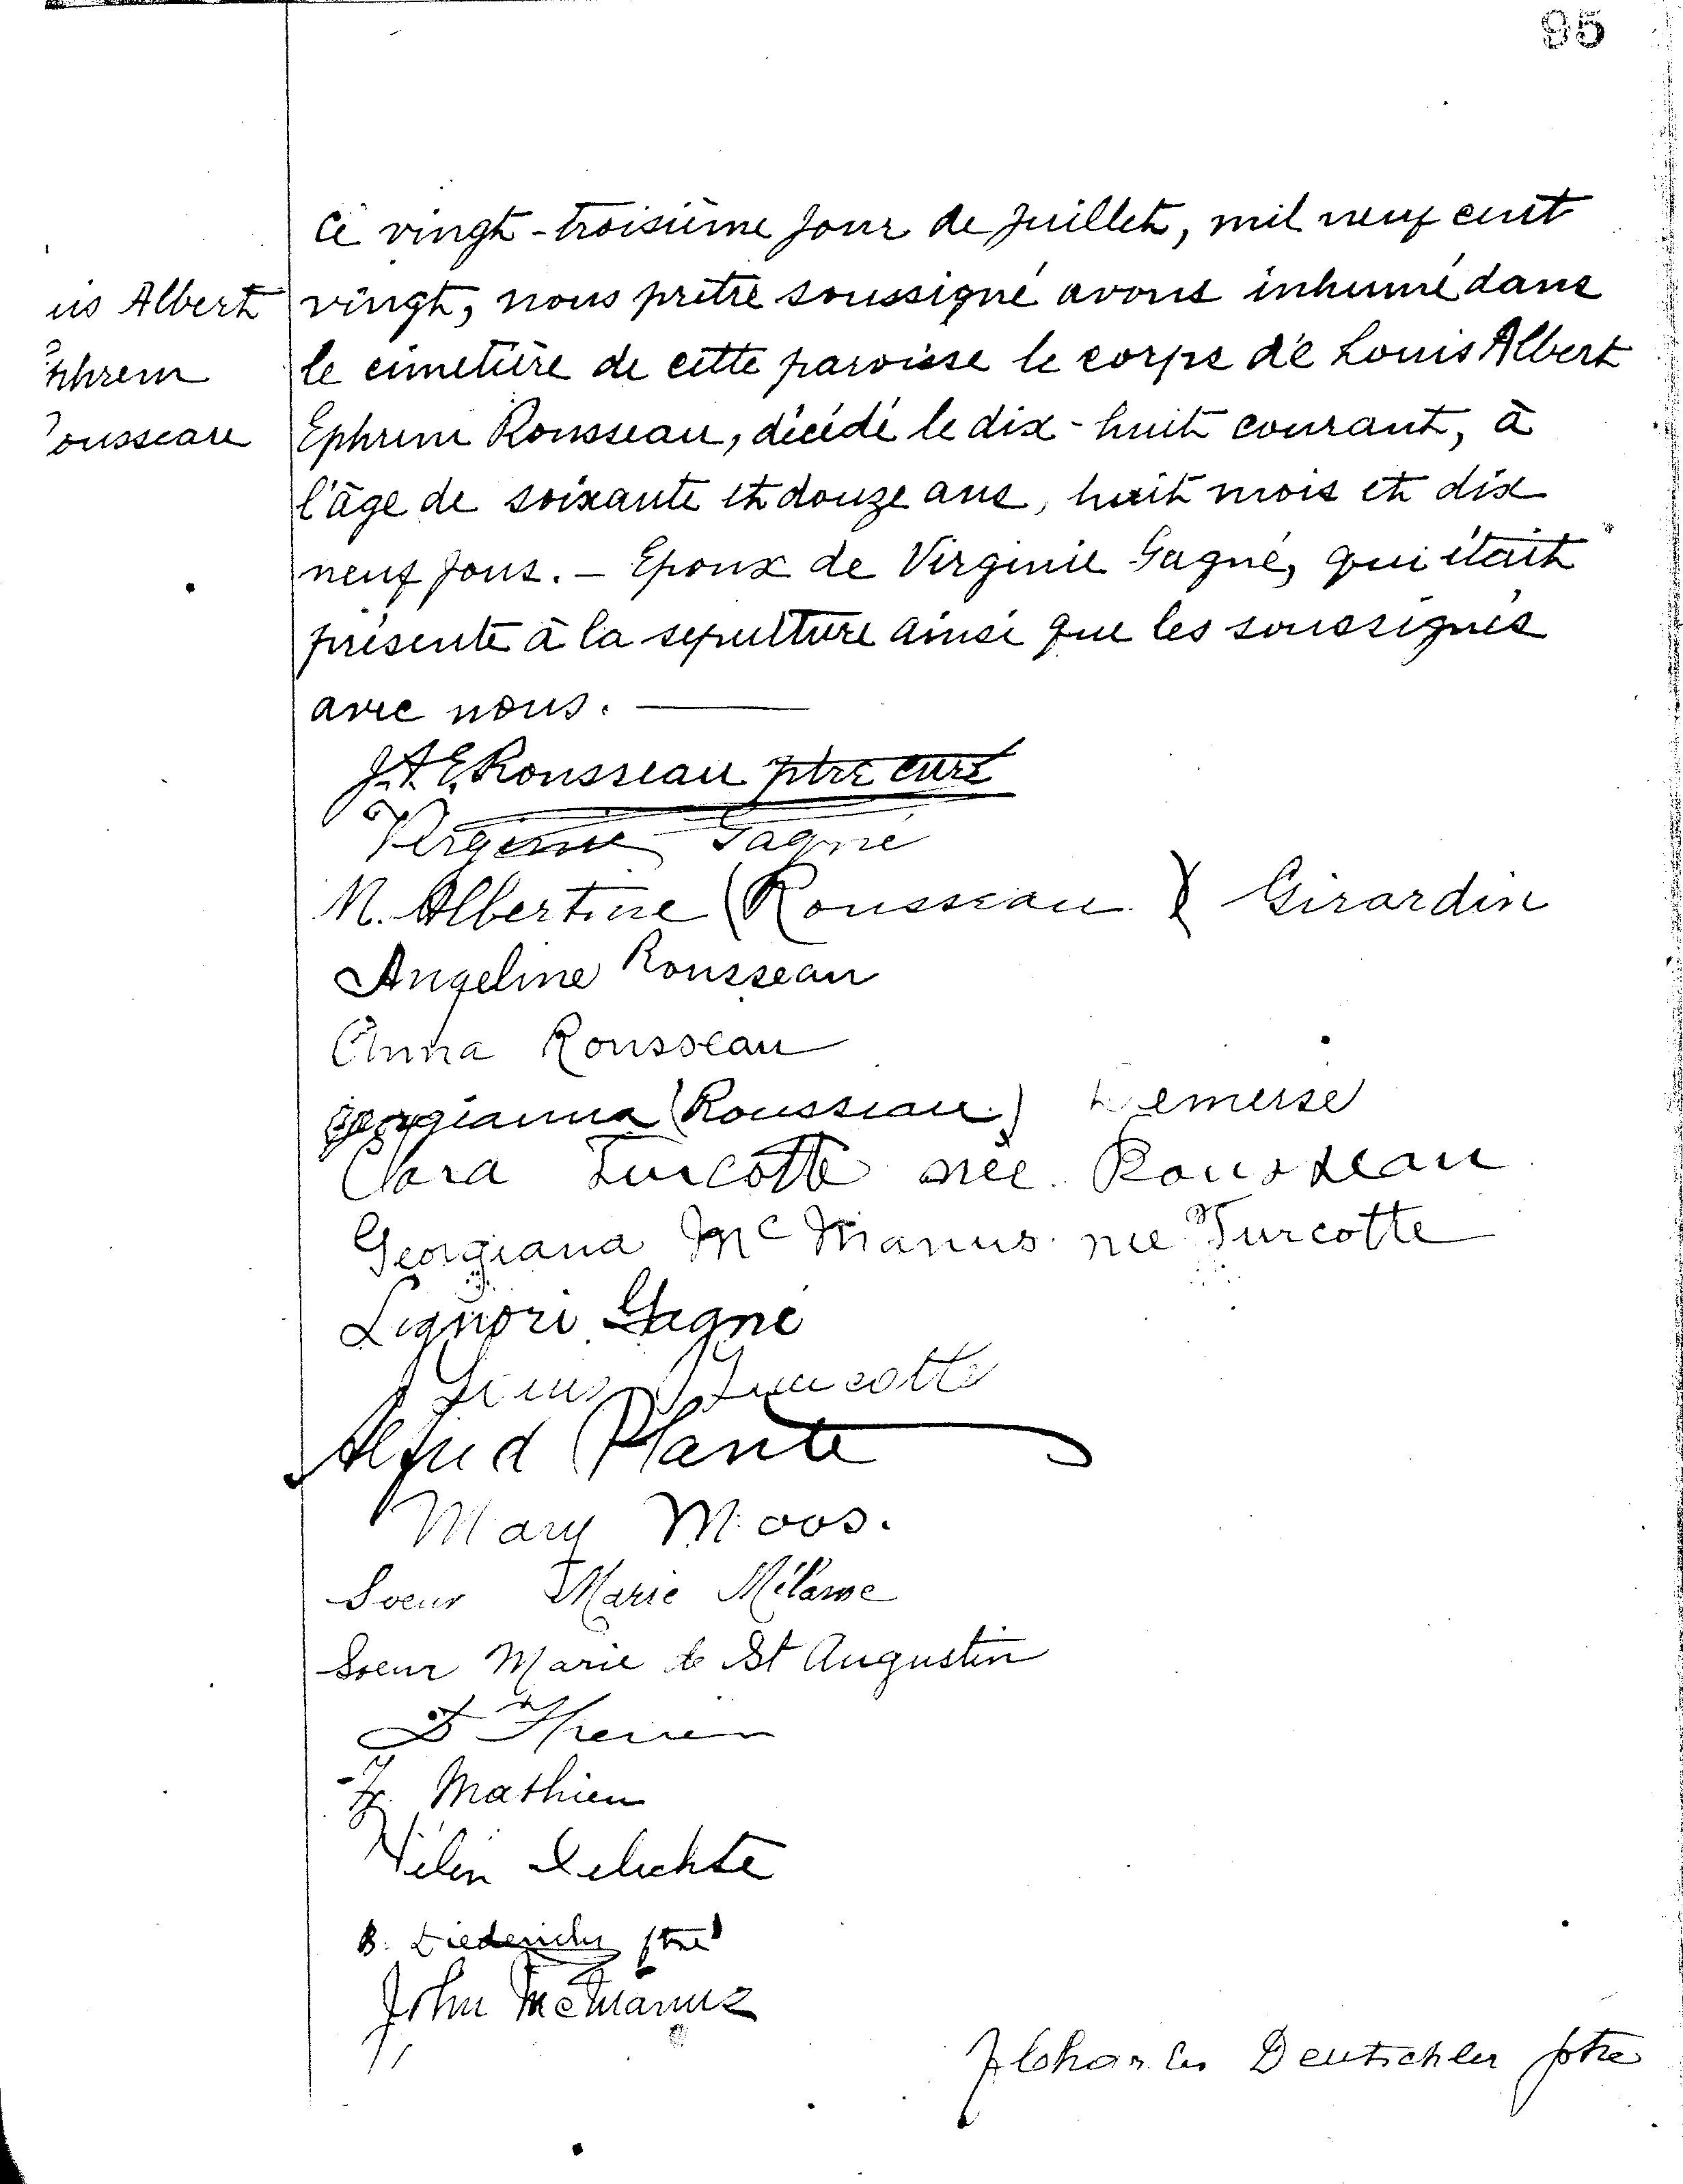 95
Ce vingt-troisième jour de Juillet, mil neuf cent
vingt, nous prêtre soussigné avons inhumé dans
le cimetière de cette paroisse le corps de Louis Albert
Ephrem Rousseau, décédé le dix-huit courant, à
l'âge de soixante et douze ans, huit mois et dix
neuf jours. – Epoux de Virginie Gagné, qui était
présente à la sepulture ainsi que les soussignés
avec nous. ———
uis Albert
Ephrem
Rousseau
J.A.E. Rousseau ptre curé
Virginie Gagné
M. Albertine (Rousseau) Girardin
Angeline Rousseau
Anna Rousseau
Georgianna (Rousseau) Lemerise
Clara Turcotte née Rousseau
Georgiana McManus nee Turcotte
Liguori Gagné
Turcotte
Alfred Plante
Mary Moos.
Soeur Marie
Soeur Marie de St Augustin
D Therien
Mathieu
B. Diederichs ptre
John McManus
J Charles Deutschler ptre